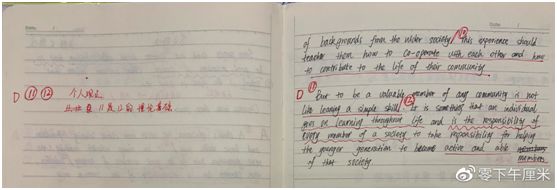 Date
D ⑪ ⑫ 个人观点
Date
of backgrounds from the wider society. ⑩ This experience should
teacher them how to co-operate with each other and how
to contribute to the life of their community.
D ⑪ But to be a valuable member of any community is not
like learning a simple skill. ⑫ It is something that an individual
goes on learning throughout life and is the responsibility of
every member of a society to take responsibility for helping
the younger generation to become active and able
members
of that society.
@零下午厘米